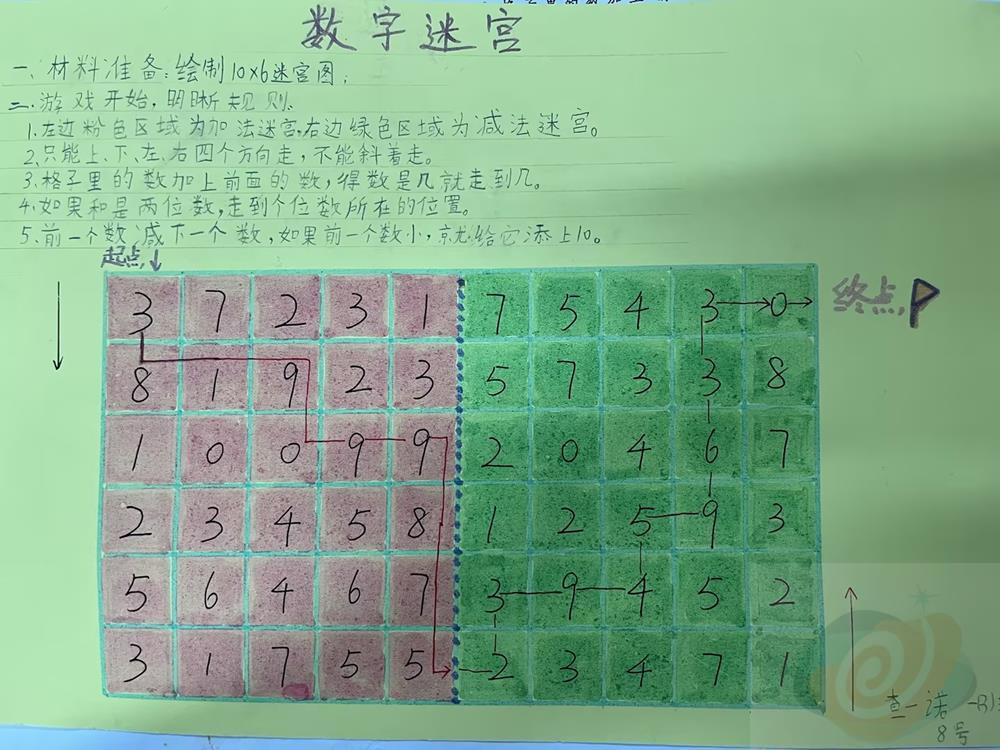 数字迷宫
一、材料准备:绘制10×6迷宫图;
二.游戏开始,明晰规则.
1.左边粉色区域为加法迷宫,右边绿色区域为减法迷宫。
2、只能上、下、左、右四个方向走,不能斜着走。
3、格子里的数加上前面的数,得数是几就走到几。
4、如果和是两位数,走到个位数所在的位置。
5、前一个数减下一个数,如果前一个数小,就给它添上10。
起点
3 7 2 3 1 7 5 4 3 0
终点
8 1 9 2 3 5 7 3 3 8
1 0 0 9 9 2 0 4 6 7
2 3 4 5 8 1 2 5 9 3
5 6 4 6 7 3 9 4 5 2
3 1 7 5 5 2 3 4 7 1
查一诺
8号